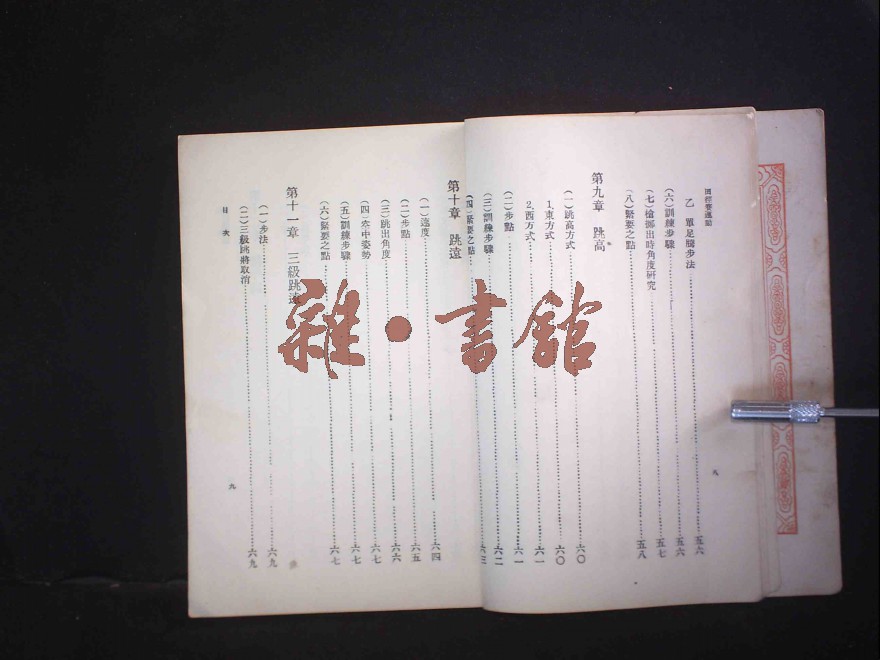 田徑賽運動
乙 單足騰步法……五六
(六)訓練步驟……五六
(七)槍擲出時角度研究……五七
(八)緊要之點……五八
第九章 跳高
(一)跳高方式……六〇
1.東方式……六〇
2.西方式……六一
(二)步點……六一
(三)訓練步驟……六二
(四)緊要之點……六三
九
第十章 跳遠
(一)速度……六四
(二)步點……六五
(三)跳出角度……六六
(四)空中姿勢……六七
(五)訓練步驟……六七
(六)緊要之點……六七
第十一章 三級跳遠
(一)步法……六九
(二)三級跳將取消……六九
目次
九
雜·書館